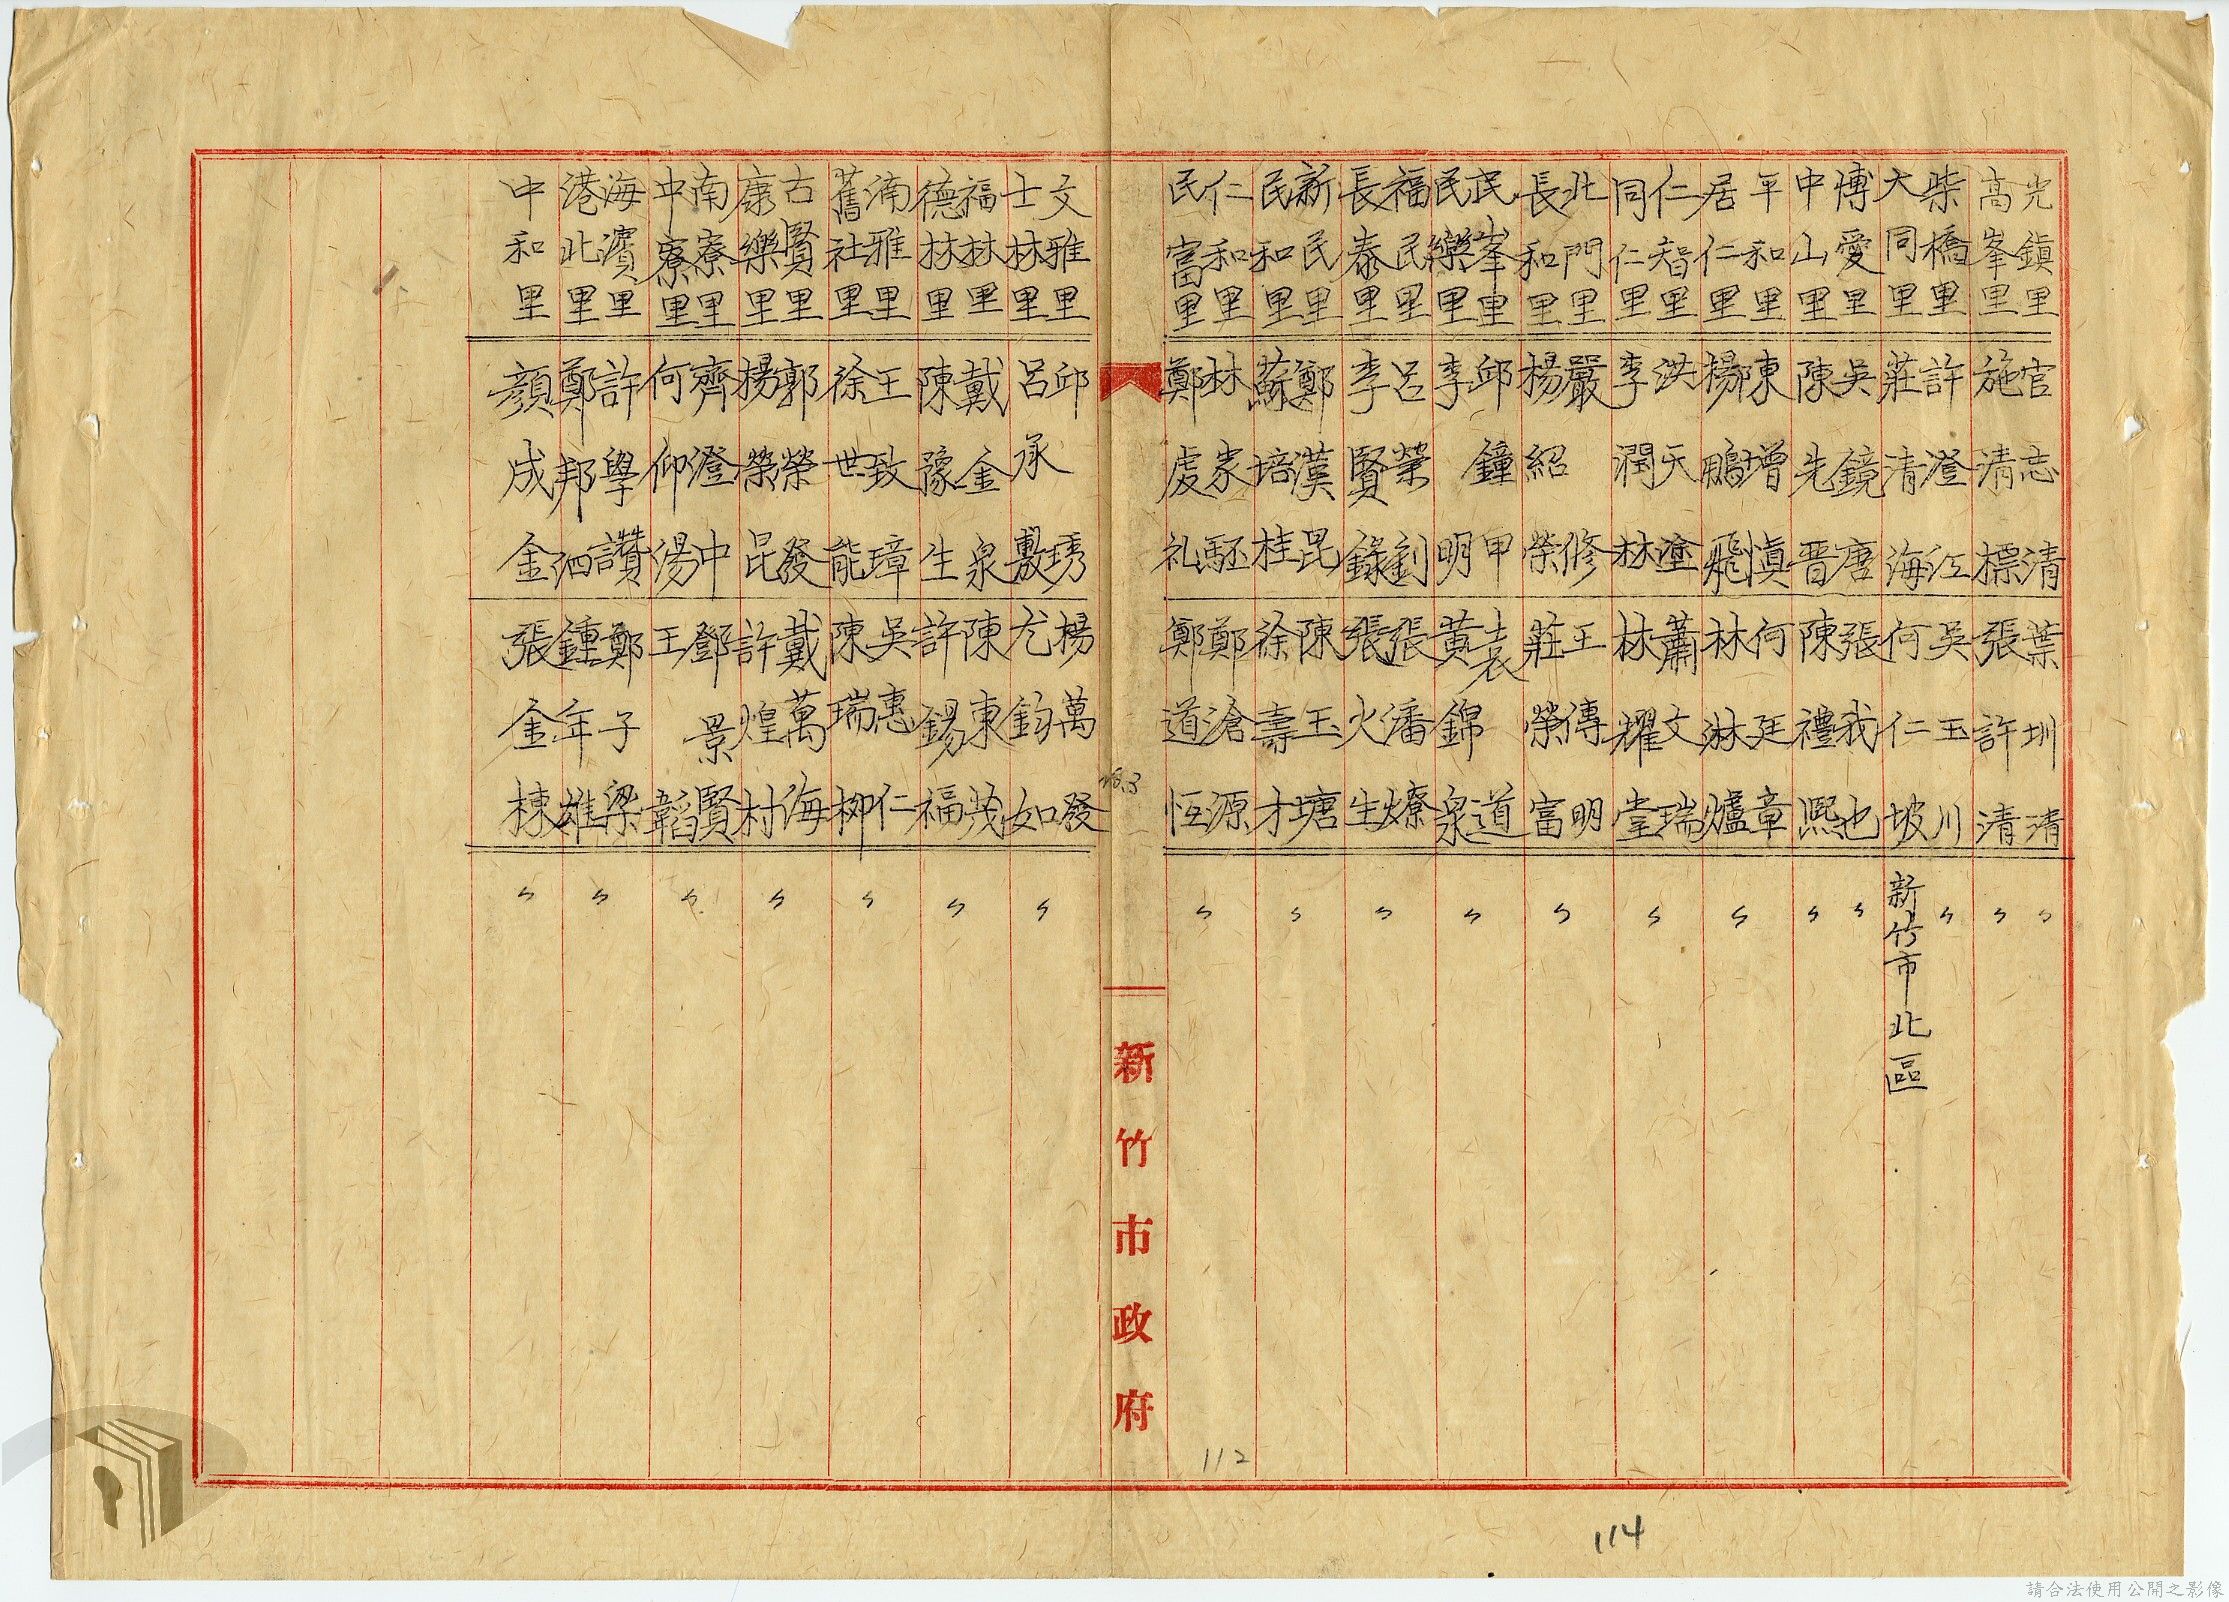 光鎮里 官志清 葉圳清 〃
高峯里 施清標 張許清 〃
柴橋里 許澄江 吳玉川 〃
大同里 莊清海 何仁坡 新竹市北區
博愛里 吳鏡唐 張我也 〃
中山里 陳先晋 陳禮熙 〃
平和里 陳增慎 何廷章
居仁里 楊鵬飛 林淋爐 〃
仁智里 洪天塗 蕭文瑞
同仁里 李潤林 林耀堂 〃
北門里 嚴修 王傳明
長和里 楊紹榮 莊榮富 〃
民峯里 邱鐘甲 袁道
民樂里 李明 黃錦泉 〃
福民里 呂榮劉 張潘燎
長泰里 李賢錄 張火生 〃
新民里 鄭漢昆 陳玉塘
民和里 蘇培桂 徐壽才 〃
仁和里 林家駓 鄭滄源
民富里 鄭虔礼 鄭道恆 〃
文雅里 邱琇 楊萬發
士林里 呂承敷 尤鈞如 〃
福林里 戴金泉 陳東茂
德林里 陳豫生 許錫福 〃
湳雅里 王致璋 吳惠仁
舊社里 徐世能 陳瑞柳 〃
古賢里 郭榮發 戴萬海
康樂里 楊榮昆 許煌村 〃
南寮里 齊澄中 鄧景賢
中寮里 何仰湯 王韜 〃
海濱里 許學讚 鄭子梁
港北里 鄭邦泗 鍾年雄 〃
中和里 顏成金 張金棟 〃
新竹市政府
112
114
請合法使用公開之影像